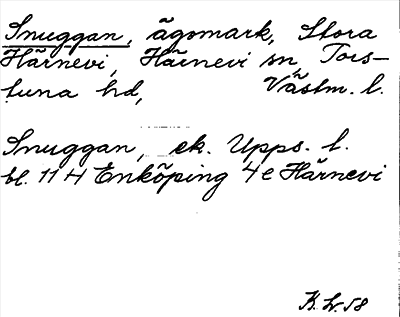 Snuggan, ägomark, Stora
Härnevi, Härnevi sn, Tors-
tuna hd, Västm. l.
Snuggan, ek. Upps. l.
bl. 11 H Enköping 4 e Härnevi
K.W. 58